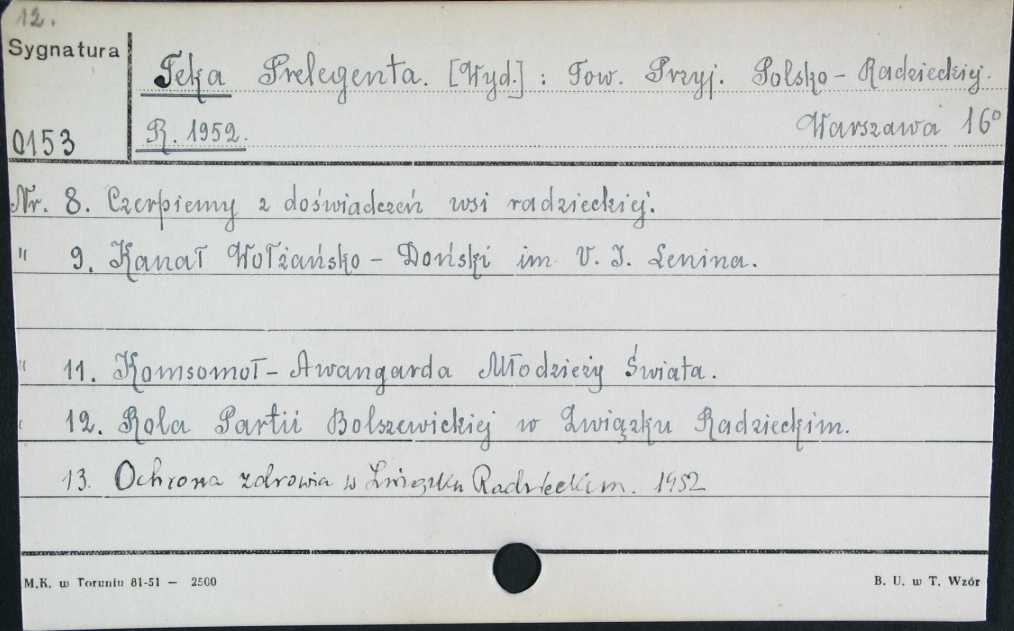 12.
Sygnatura
Teka Prelegenta. [Wyd.] : Tow. Przyj. Polsko - Radzieckiej.
0153
R. 1952. Warszawa 16°
Nr. 8. Czerpiemy z doświadczeń wsi radzieckiej.
" 9. Kanał Wołżańsko - Doński im. V. I. Lenina.
" 11. Komsomoł - Awangarda Młodzieży Świata.
" 12. Rola Partii Bolszewickiej w Związku Radzieckim.
13. Ochrona zdrowia w Związku Radzieckim. 1952
M.K. w Toruniu 81-51 — 2500
B. U. w T. Wzór